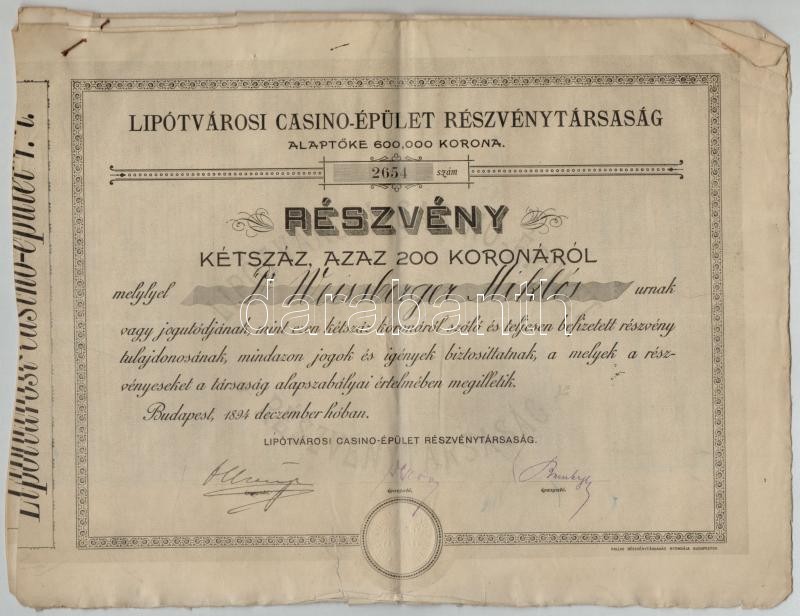 LIPÓTVÁROSI CASINO-ÉPÜLET RÉSZVÉNYTÁRSASÁG
ALAPTŐKE 600,000 KORONA.
2654 szám
RÉSZVÉNY
KÉTSZÁZ, AZAZ 200 KORONÁRÓL
melylyel Weissberger Miklós urnak
vagy jogutódjának, mint ezen kétszáz koronáról szóló és teljesen befizetett részvény
tulajdonosának, mindazon jogok és igények biztosittatnak, a melyek a rész-
vényeseket a társaság alapszabályai értelmében megilletik.
Budapest, 1894 deczember hóban.
LIPÓTVÁROSI CASINO-ÉPÜLET RÉSZVÉNYTÁRSASÁG.
igazgató. igazgató. igazgató.
PALLAS RÉSZVÉNYTÁRSASÁG NYOMDÁJA BUDAPESTEN
Lipótvárosi casino-épület r. t.
databanth